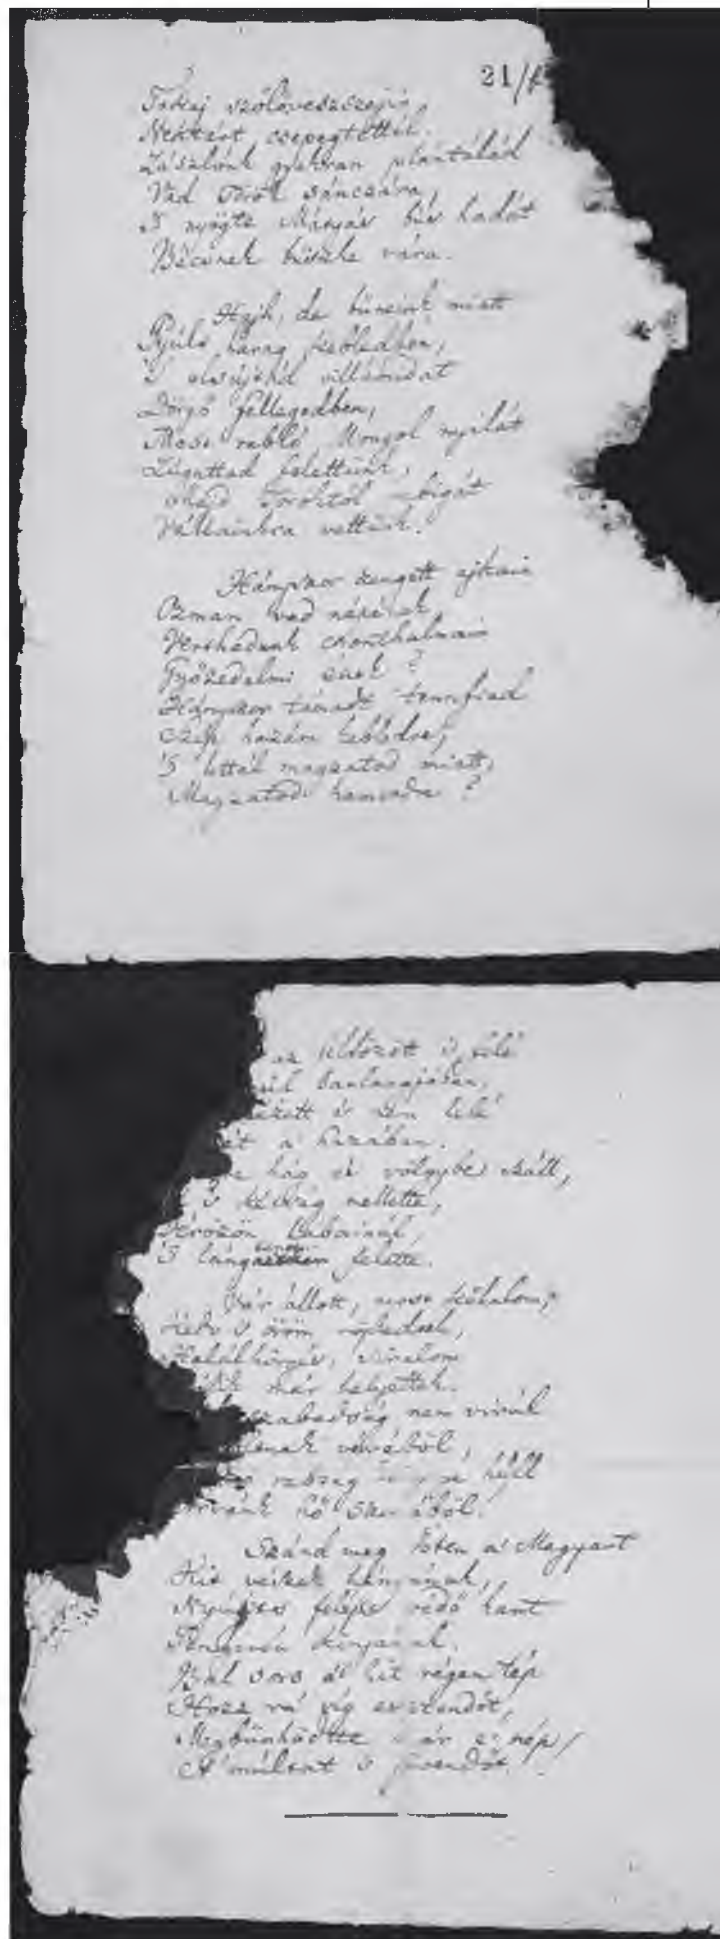 21/
Tokaj szőlővesszejin
Nektárt csepegtettél.
Zászlónk gyakran plántálád
Vad török sáncára,
S nyögte Mátyás bús hadát
Bécsnek büszke vára.
Hajh, de bűneink miatt
Gyúlt harag kebledben,
S elsújtád villámidat
Dörgő fellegedben,
Most rabló Mongol nyilát
Zúgattad felettünk,
Majd Töröktől rabigát
Vállainkra vettünk.
Hányszor zengett ajkain
Ozman vad népének
Vert hadunk csonthalmain
Győzedelmi ének?
Hányszor támadt tennfiad
Szép hazám kebledre,
S lettél magzatod miatt,
Magzatod hamvedre?
az üldözött s felé
túl barlangjában,
nézett és nem lelé
ét a' hazában.
re hág és völgybe száll,
s kétség mellette,
Vérözön lábainál,
S lángtenger felette.
Vár állott, most kőhalom,
Kedv s öröm röpkedtek,
Halálhörgés, siralom
már helyettek.
szabadság nem virúl
nak véréből,
rabság könnye hull
Árvánk hő szeméből.
Szánd meg Isten a' Magyart
Kit vészek hányának,
Nyújts feléje védő kart
Tengerén kínjának.
Bal sors a' kit régen tép
Hozz rá víg esztendőt,
Megbűnhődte már e' nép
A' múltat s jövendőt.